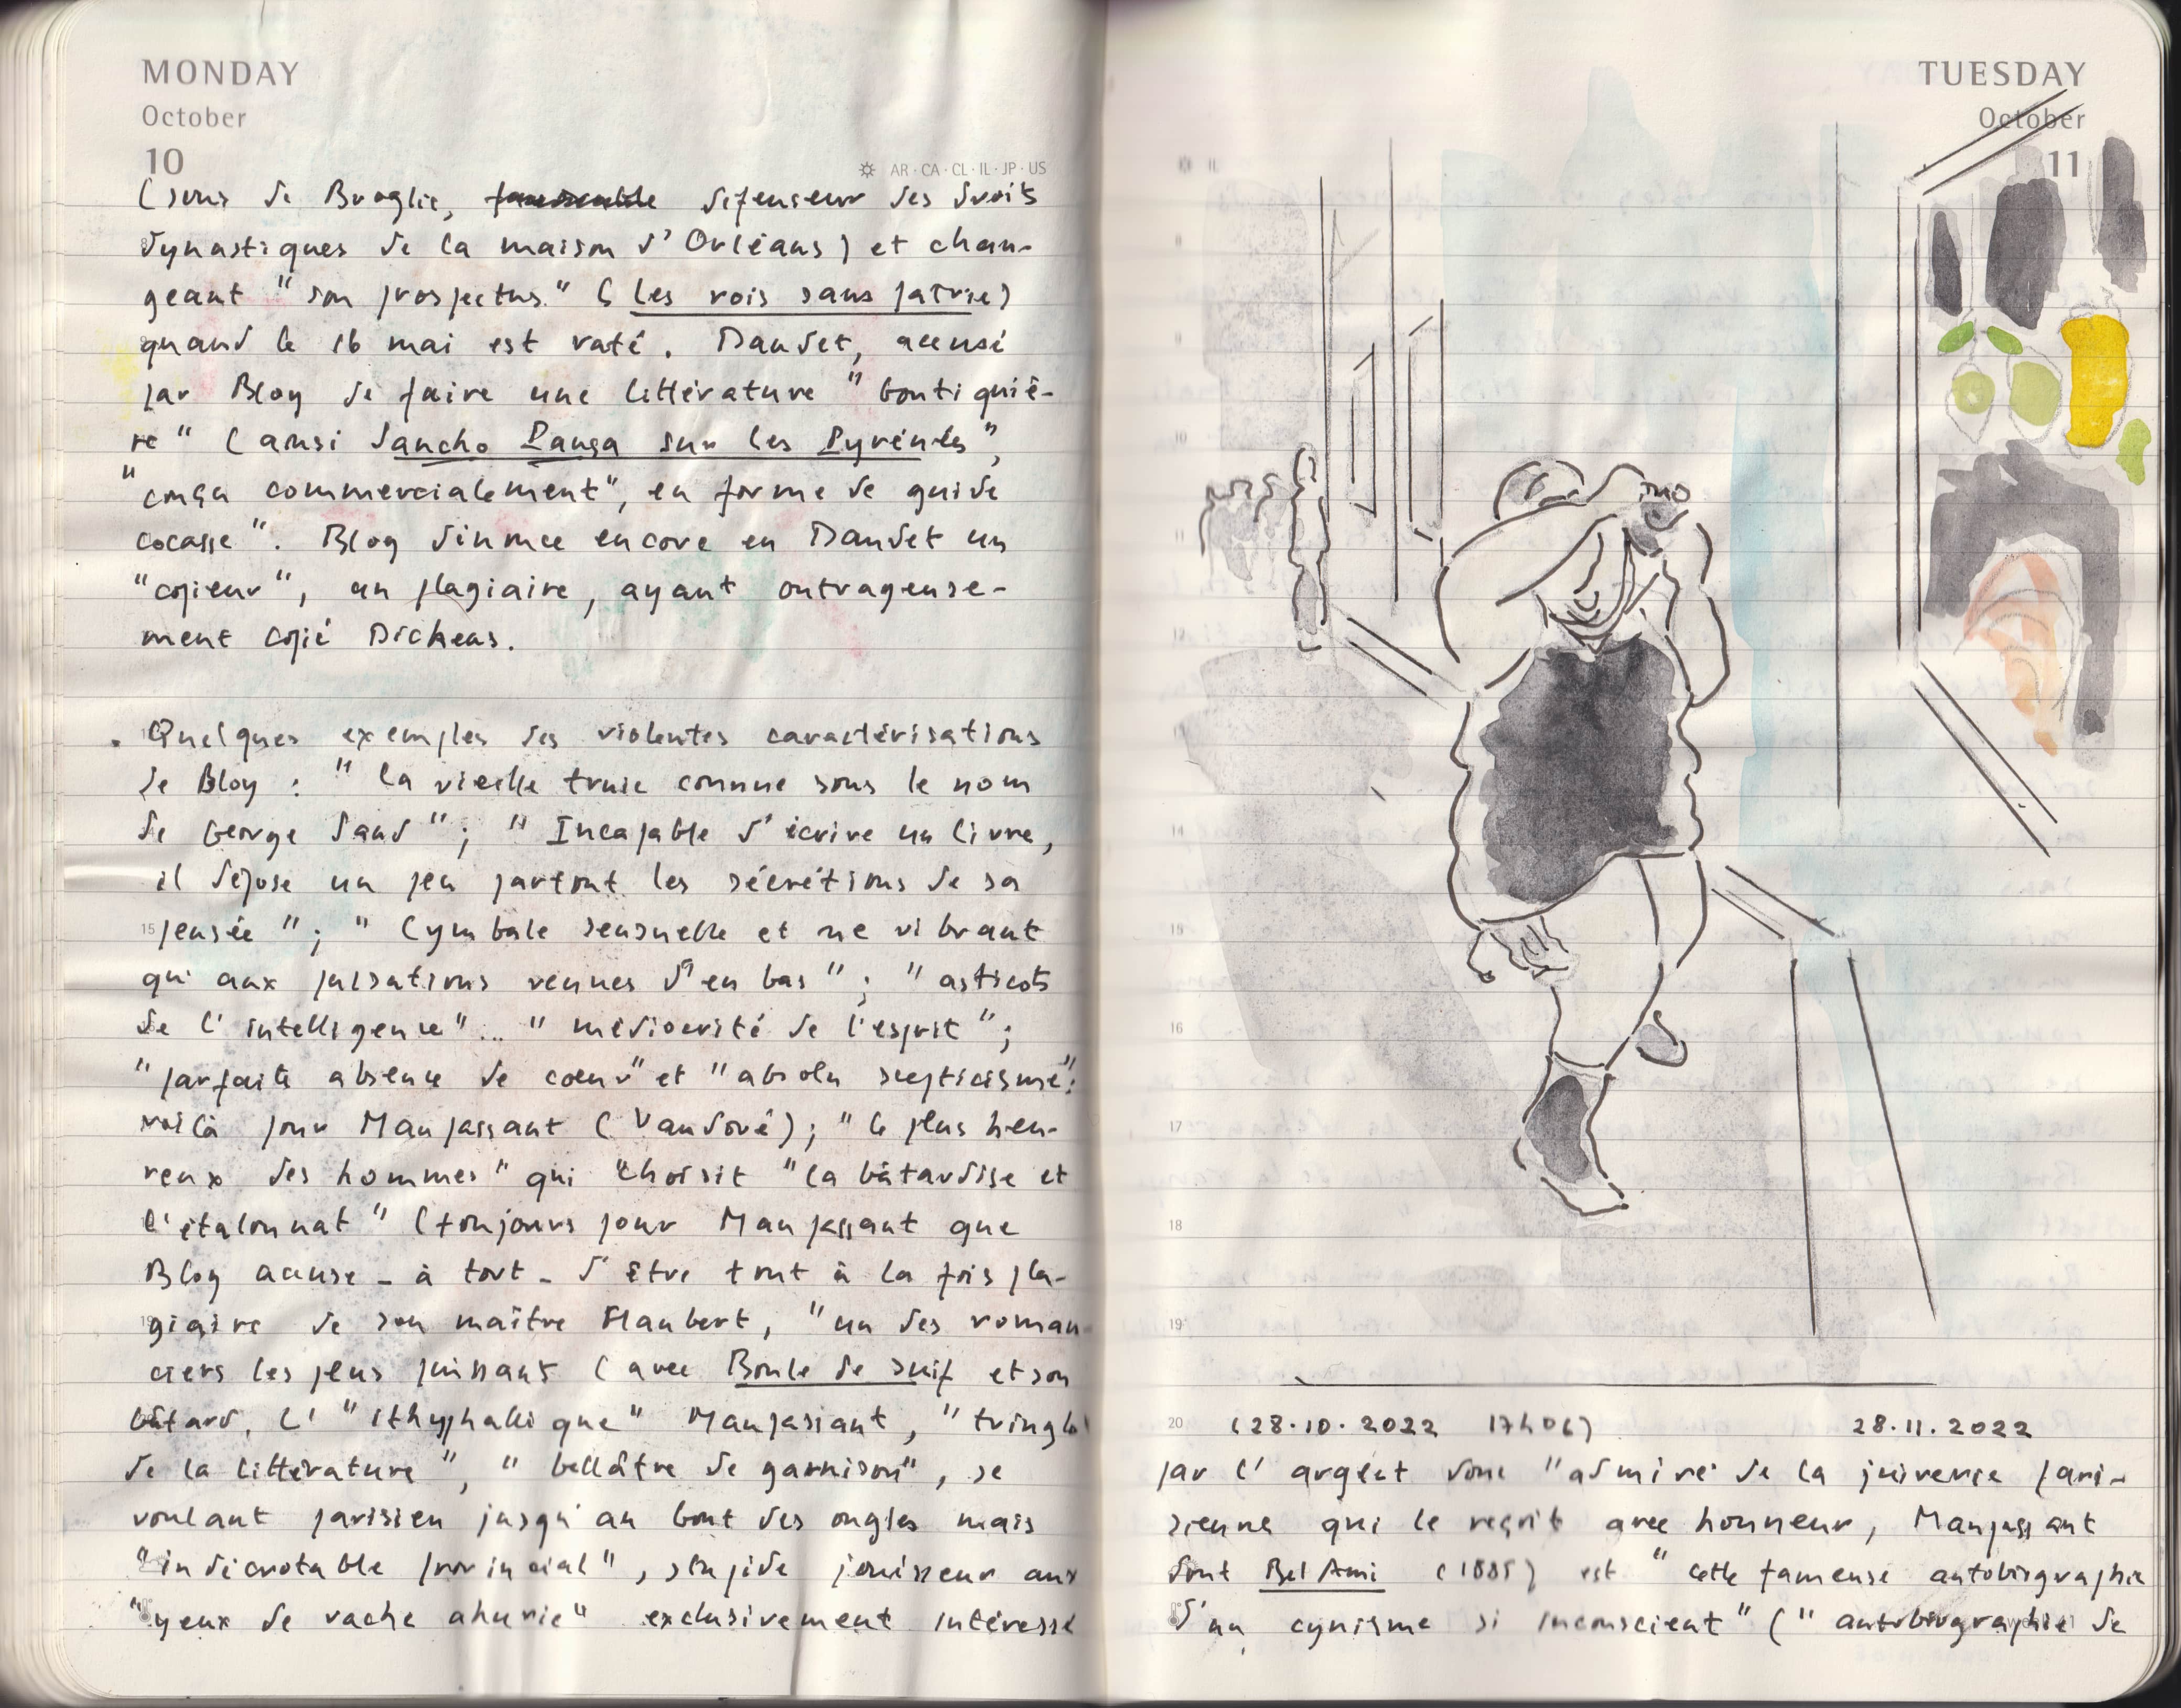 MONDAY
October
10
AR · CA · CL · IL · JP · US
(sous de Broglie, défenseur des droits
dynastiques de la maison d'Orléans) et chan-
geant "son prospectus" (Les rois sans patrie)
quand le 16 mai est raté. Daudet, accusé
par Bloy de faire une littérature "boutiquiè-
re" (ainsi Sancho Pança sur les Pyrénées",
"conçu commercialement", en forme de guide
cocasse". Bloy dénonce encore en Daudet un
"copieur", un plagiaire, ayant outrageuse-
ment copié Dickens.
. Quelques exemples des violentes caractérisations
de Bloy : "la vieille truie connue sous le nom
de George Sand" ; "Incapable d'écrire un livre,
il dépose un peu partout les sécrétions de sa
15 pensée" ; "Cymbale sensuelle et ne vibrant
qu'aux pulsations venues d'en bas" ; "asticots
de l'intelligence"... "médiocrité de l'esprit" ;
"parfaite absence de cœur" et "absolu scepticisme":
voilà pour Maupassant (Vaudoré) ; "le plus heu-
reux des hommes" qui "choisit "la bâtardise et
l'étalonnat" (toujours pour Maupassant que
Bloy accuse - à tort - d'être tout à la fois pla-
giaire de son maître Flaubert, "un des roman-
ciers les plus puissants (avec Boule de suif et son
bâtard, l'"ithyphallique" Maupassant, "tringlo
de la littérature", "bellâtre de garnison", se
voulant parisien jusqu'au bout des ongles mais
"indécrotable provincial", stupide jouisseur aux
"yeux de vache ahurie" exclusivement intéressé
TUESDAY
October
11
10
12
14
16
17
18
19
20 (28.10.2022 17h06) 28.11.2022
par l'argent donc "admiré" de la juiverie pari-
sienne qui le reçoit avec honneur, Maupassant
dont Bel Ami (1885) est "cette fameuse autobiographie
d'un cynisme si inconscient" ("autobiographie de